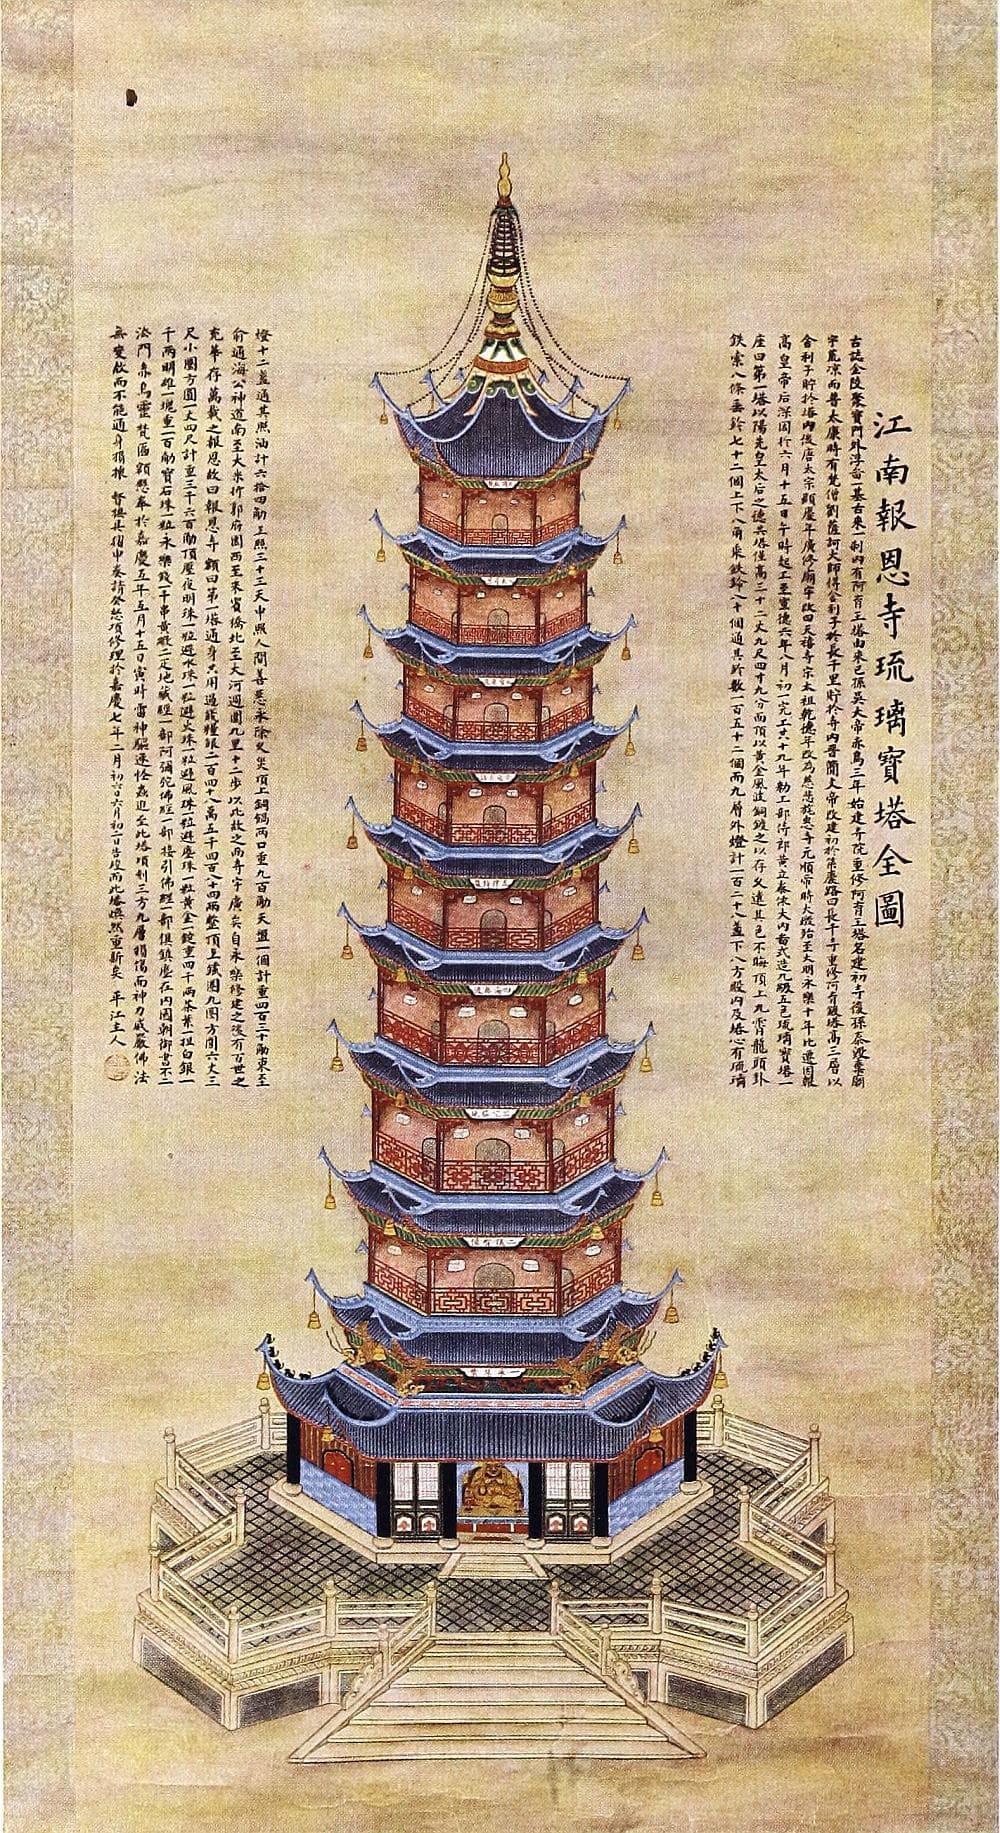 江南報恩寺琉璃寶塔全圖
古誌金陵聚寶門外浮畜一基古來一剎內有阿育王塔由來已係吳大帝赤烏三年始建寺院重修阿育王塔名建初寺後孫泰毀棄剎
宇荒凉而晉太康時有梵僧劉薩訶大師得舍利子於長干里貯於寺內晉簡文帝改建初於第慶路曰長干寺重修阿育廢塔高三層以
舍利子貯於塔內後唐太宗顯慶年廣修廟宇改曰天禧寺宗太祖乾德年改為慈悲旌忠寺元順帝時大燬殆至大明永樂十年比遷因報
高皇帝后深因於六月十五日午時起工至宣德六年八月初一完工共十九年勅工部侍郎黃立泰依大內啚式造九級五色琉璃寶塔一
座曰第一塔以陽先皇太后之德共塔僅高三十二丈九尺四寸九分而頂以黃金風波銅鍍之以存久遠其色不晦頂上九霄龍頭卦
鉄索八條垂鈴七十二個上下八角乘鉄鈴八十個通具於數一百五十二個而九層外燈計一百二十八盞下八方殿內及塔心有琉璃
燈十二盞通其照油計六拾四觔上照三十三天中照人間善惡永除久災頂上銅鍋兩口重九百觔天盤一個計重四百三十觔東至
俞通海公神道南至大米行郭府園西至來賓橋北至大河週圍九里十二步以此故之而寺宇廣矣自永樂修建之後有百世之
充華存萬載之報恩故曰報恩寺額曰第一塔通身共用過錢糧銀二百四十八萬五千四百八十四兩整頂上鐵圈九圈方圓六丈三
尺小圈方圓一丈四尺計重三千六百觔頂壓夜明珠一粒避水珠一粒避火珠一粒避風珠一粒避塵珠一粒黃金一錠重四千兩茶葉一担白銀一
千兩明雄一塊重一百觔寶石珠一粒永樂錢一千串黃緞二疋地藏經一部阿彌陀佛經一部接引佛經一部俱鎮塵在內國朝御世不二
法門赤烏靈梵區額懸奉於嘉慶五年五月十五日寅時雷神驅逐怪蟲迎至此塔項剎三方九層損傷而神力威嚴佛法
無變故而不能通身損壞 督撫具摺申奏請發怒項修理於嘉慶七年二月初六日六月初二日告竣而此塔煥然重新矣 平江主人